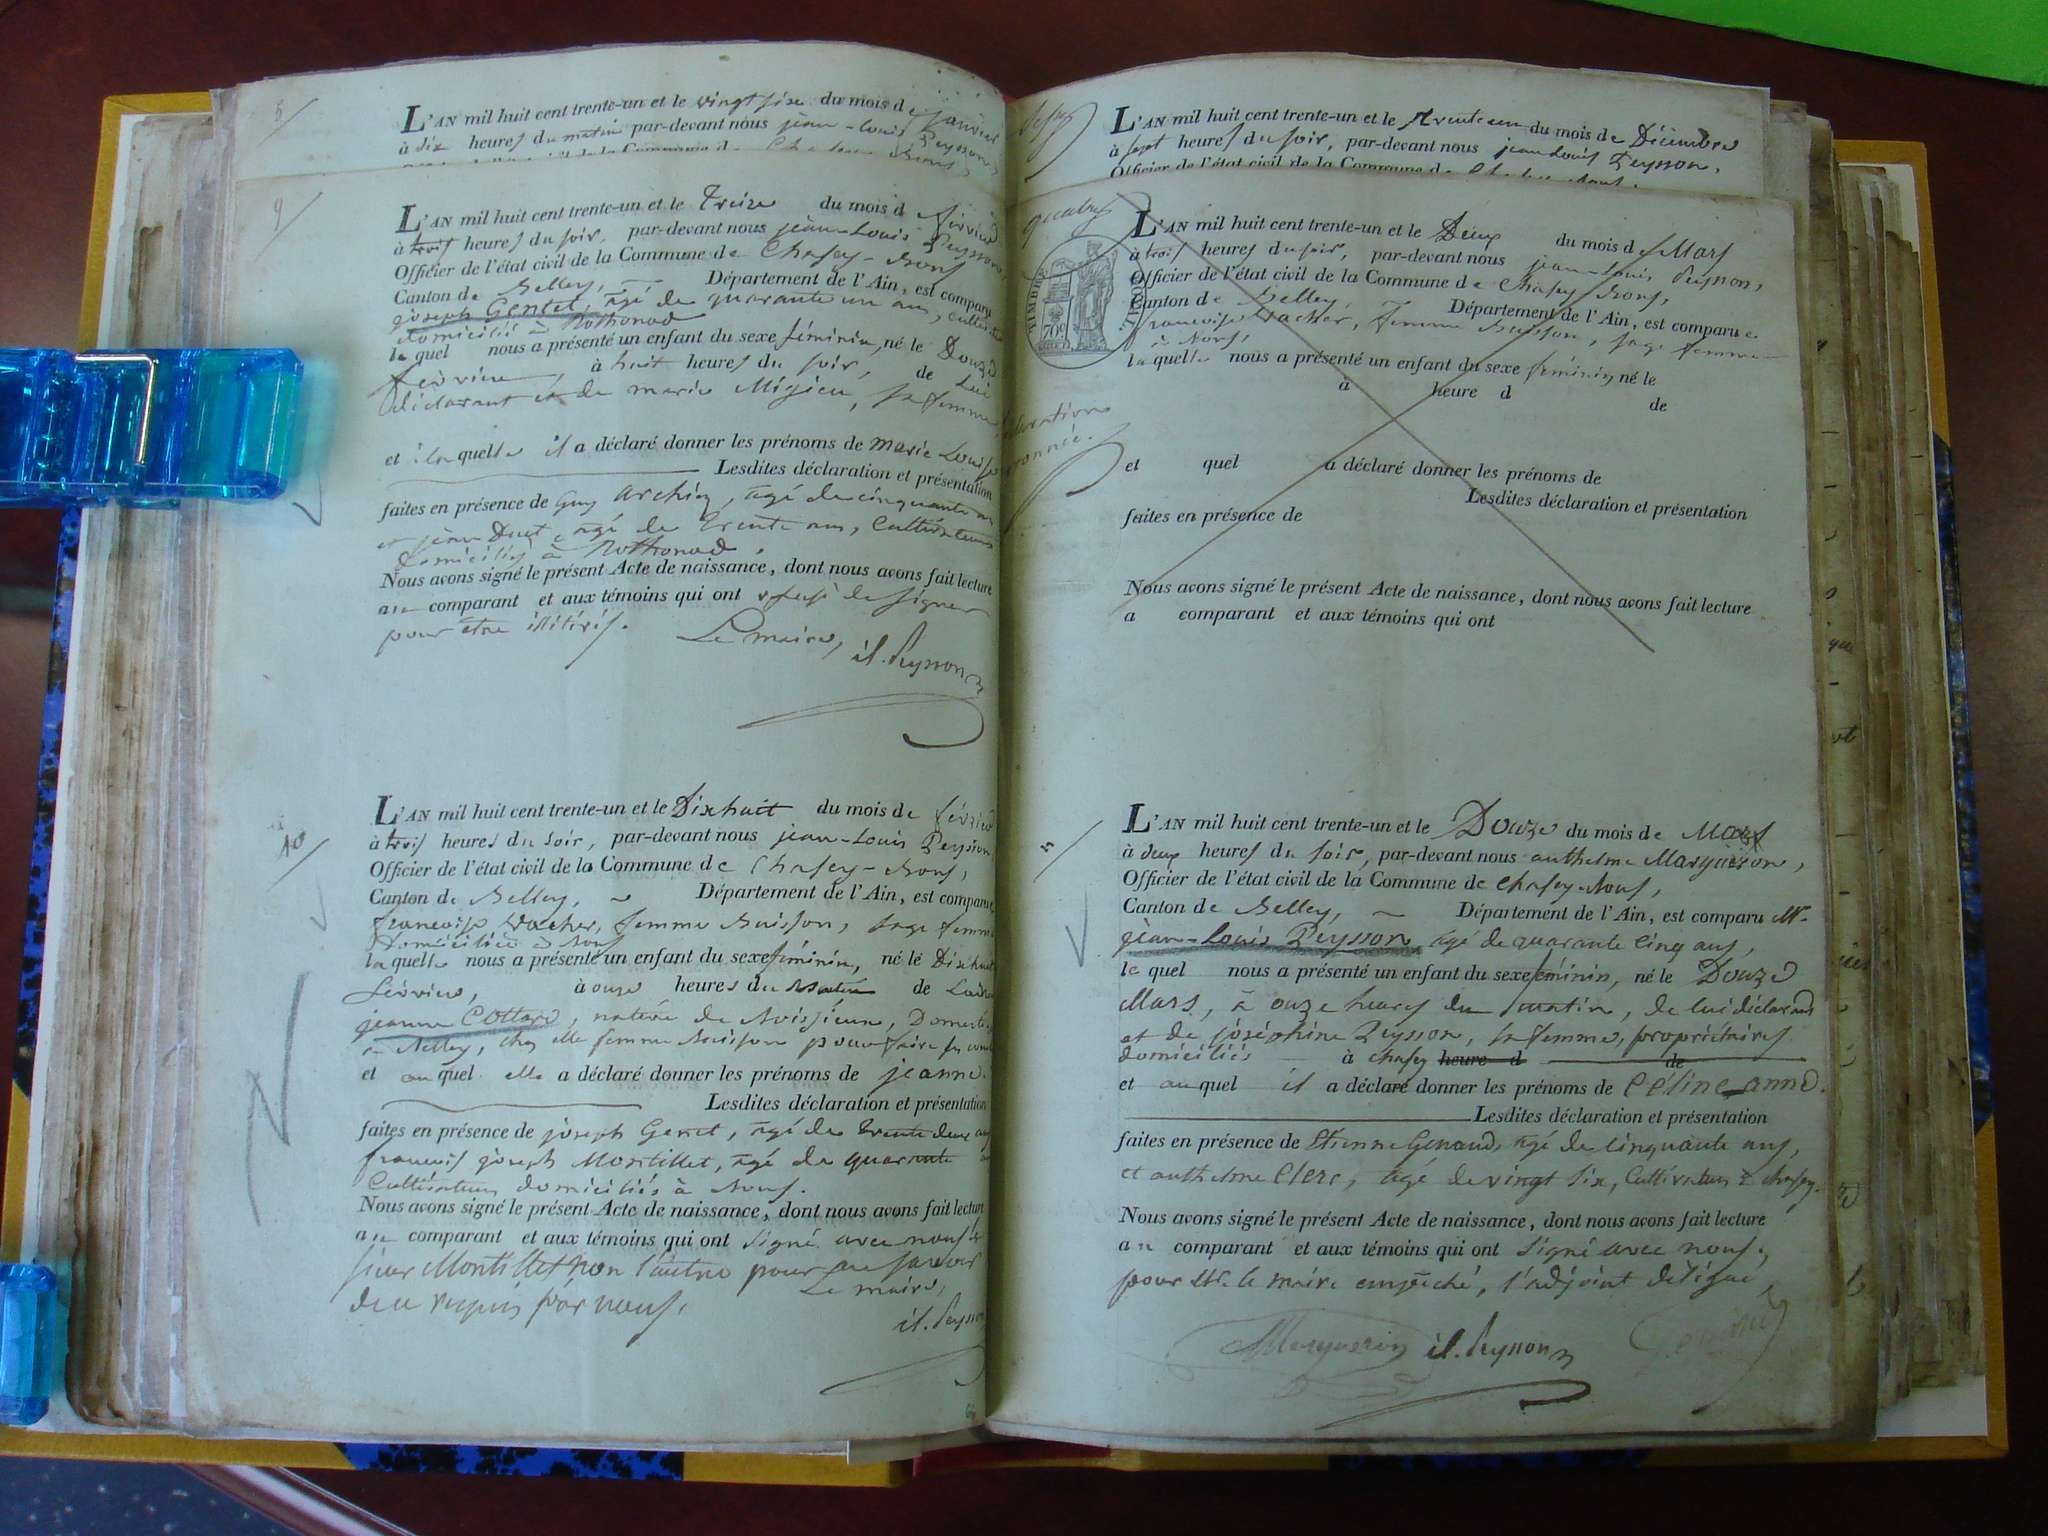 8
L'AN mil huit cent trente-un et le vingt six du mois de janvier
à dix heures du matin par-devant nous jean-louis Peysson,
9
L'AN mil huit cent trente-un et le Treize du mois d février
à trois heures du soir, par-devant nous jean-Louis Peysson,
Officier de l'état civil de la Commune de Chasey-Bons
Canton de Belley, Département de l'Ain, est comparu
joseph Gentet, âgé de quarante un ans,
domicilié à Rothonod
lequel nous a présenté un enfant du sexe féminin, né le Douze
février, à huit heures du soir, de Lui
déclarant et de marie Migieu, sa femme
et à laquelle il a déclaré donner les prénoms de marie Louise
Lesdites déclaration et présentation
faites en présence de Guy, âgé de cinquante ans
et jean, âgé de Trente ans, Cultivateurs
domiciliés à Rothonod.
Nous avons signé le présent Acte de naissance, dont nous avons fait lecture
au comparant et aux témoins qui ont refusé de signer
pour être illitérés.
Le maire,
jl. Peysson
10
L'AN mil huit cent trente-un et le Dixhuit du mois de février
à trois heures du soir, par-devant nous jean-Louis Peysson
Officier de l'état civil de la Commune de Chasey-Bons,
Canton de Belley, Département de l'Ain, est comparue
francoise Vacher, femme Buisson, sage femme
domiciliée à Bons
laquelle nous a présenté un enfant du sexe féminin, né le Dixhuit
février, à onze heures du matin de
jeanne Cottard, native de, Domestique
à Belley, chez elle femme Buisson pour faire ses couches
et auquel elle a déclaré donner les prénoms de jeanne.
Lesdites déclaration et présentation
faites en présence de joseph Genet, âgé de trente deux ans
francois joseph Montillet, âgé de quarante
Cultivateurs domiciliés à Bons.
Nous avons signé le présent Acte de naissance, dont nous avons fait lecture
au comparant et aux témoins qui ont signé avec nous le
sieur Montillet non l'autre pour ne savoir
de ce requis par nous,
Le maire,
jl. Peysson
L'AN mil huit cent trente-un et le trente un du mois de Décembre
à sept heures du soir, par-devant nous jean Louis Peysson,
Officier de l'état civil de la Commune de Chasey-Bons,
L'AN mil huit cent trente-un et le Deux du mois de Mars
à trois heures du soir, par-devant nous jean-Louis Peysson,
TIMBRE ROYAL
70c
Officier de l'état civil de la Commune de Chasey-Bons,
Canton de Belley, Département de l'Ain, est comparue
francoise Vacher, femme Buisson, sage femme
à Bons,
laquelle nous a présenté un enfant du sexe féminin né le
à heure d de
et quel a déclaré donner les prénoms de
Lesdites déclaration et présentation
faites en présence de
Nous avons signé le présent Acte de naissance, dont nous avons fait lecture
a comparant et aux témoins qui ont
11
L'AN mil huit cent trente-un et le Douze du mois de Mars
à deux heures du soir, par-devant nous anthelme Marqueron,
Officier de l'état civil de la Commune de Chasey-Bons,
Canton de Belley, Département de l'Ain, est comparu Mr
jean-Louis Peysson âgé de quarante cinq ans,
lequel nous a présenté un enfant du sexe féminin, né le Douze
Mars, à onze heures du matin, de lui déclarant
et de joséphine Peysson, sa femme, propriétaires
domiciliés à chasey heure d de
et auquel il a déclaré donner les prénoms de Céline anne.
Lesdites déclaration et présentation
faites en présence de Etienne Genaud, âgé de cinquante ans,
et anthelme Clerc, âgé de vingt six, Cultivateurs à chasey.
Nous avons signé le présent Acte de naissance, dont nous avons fait lecture
au comparant et aux témoins qui ont signé avec nous.
pour Mr le maire empêché, l'adjoint délégué
Marqueron jl. Peysson